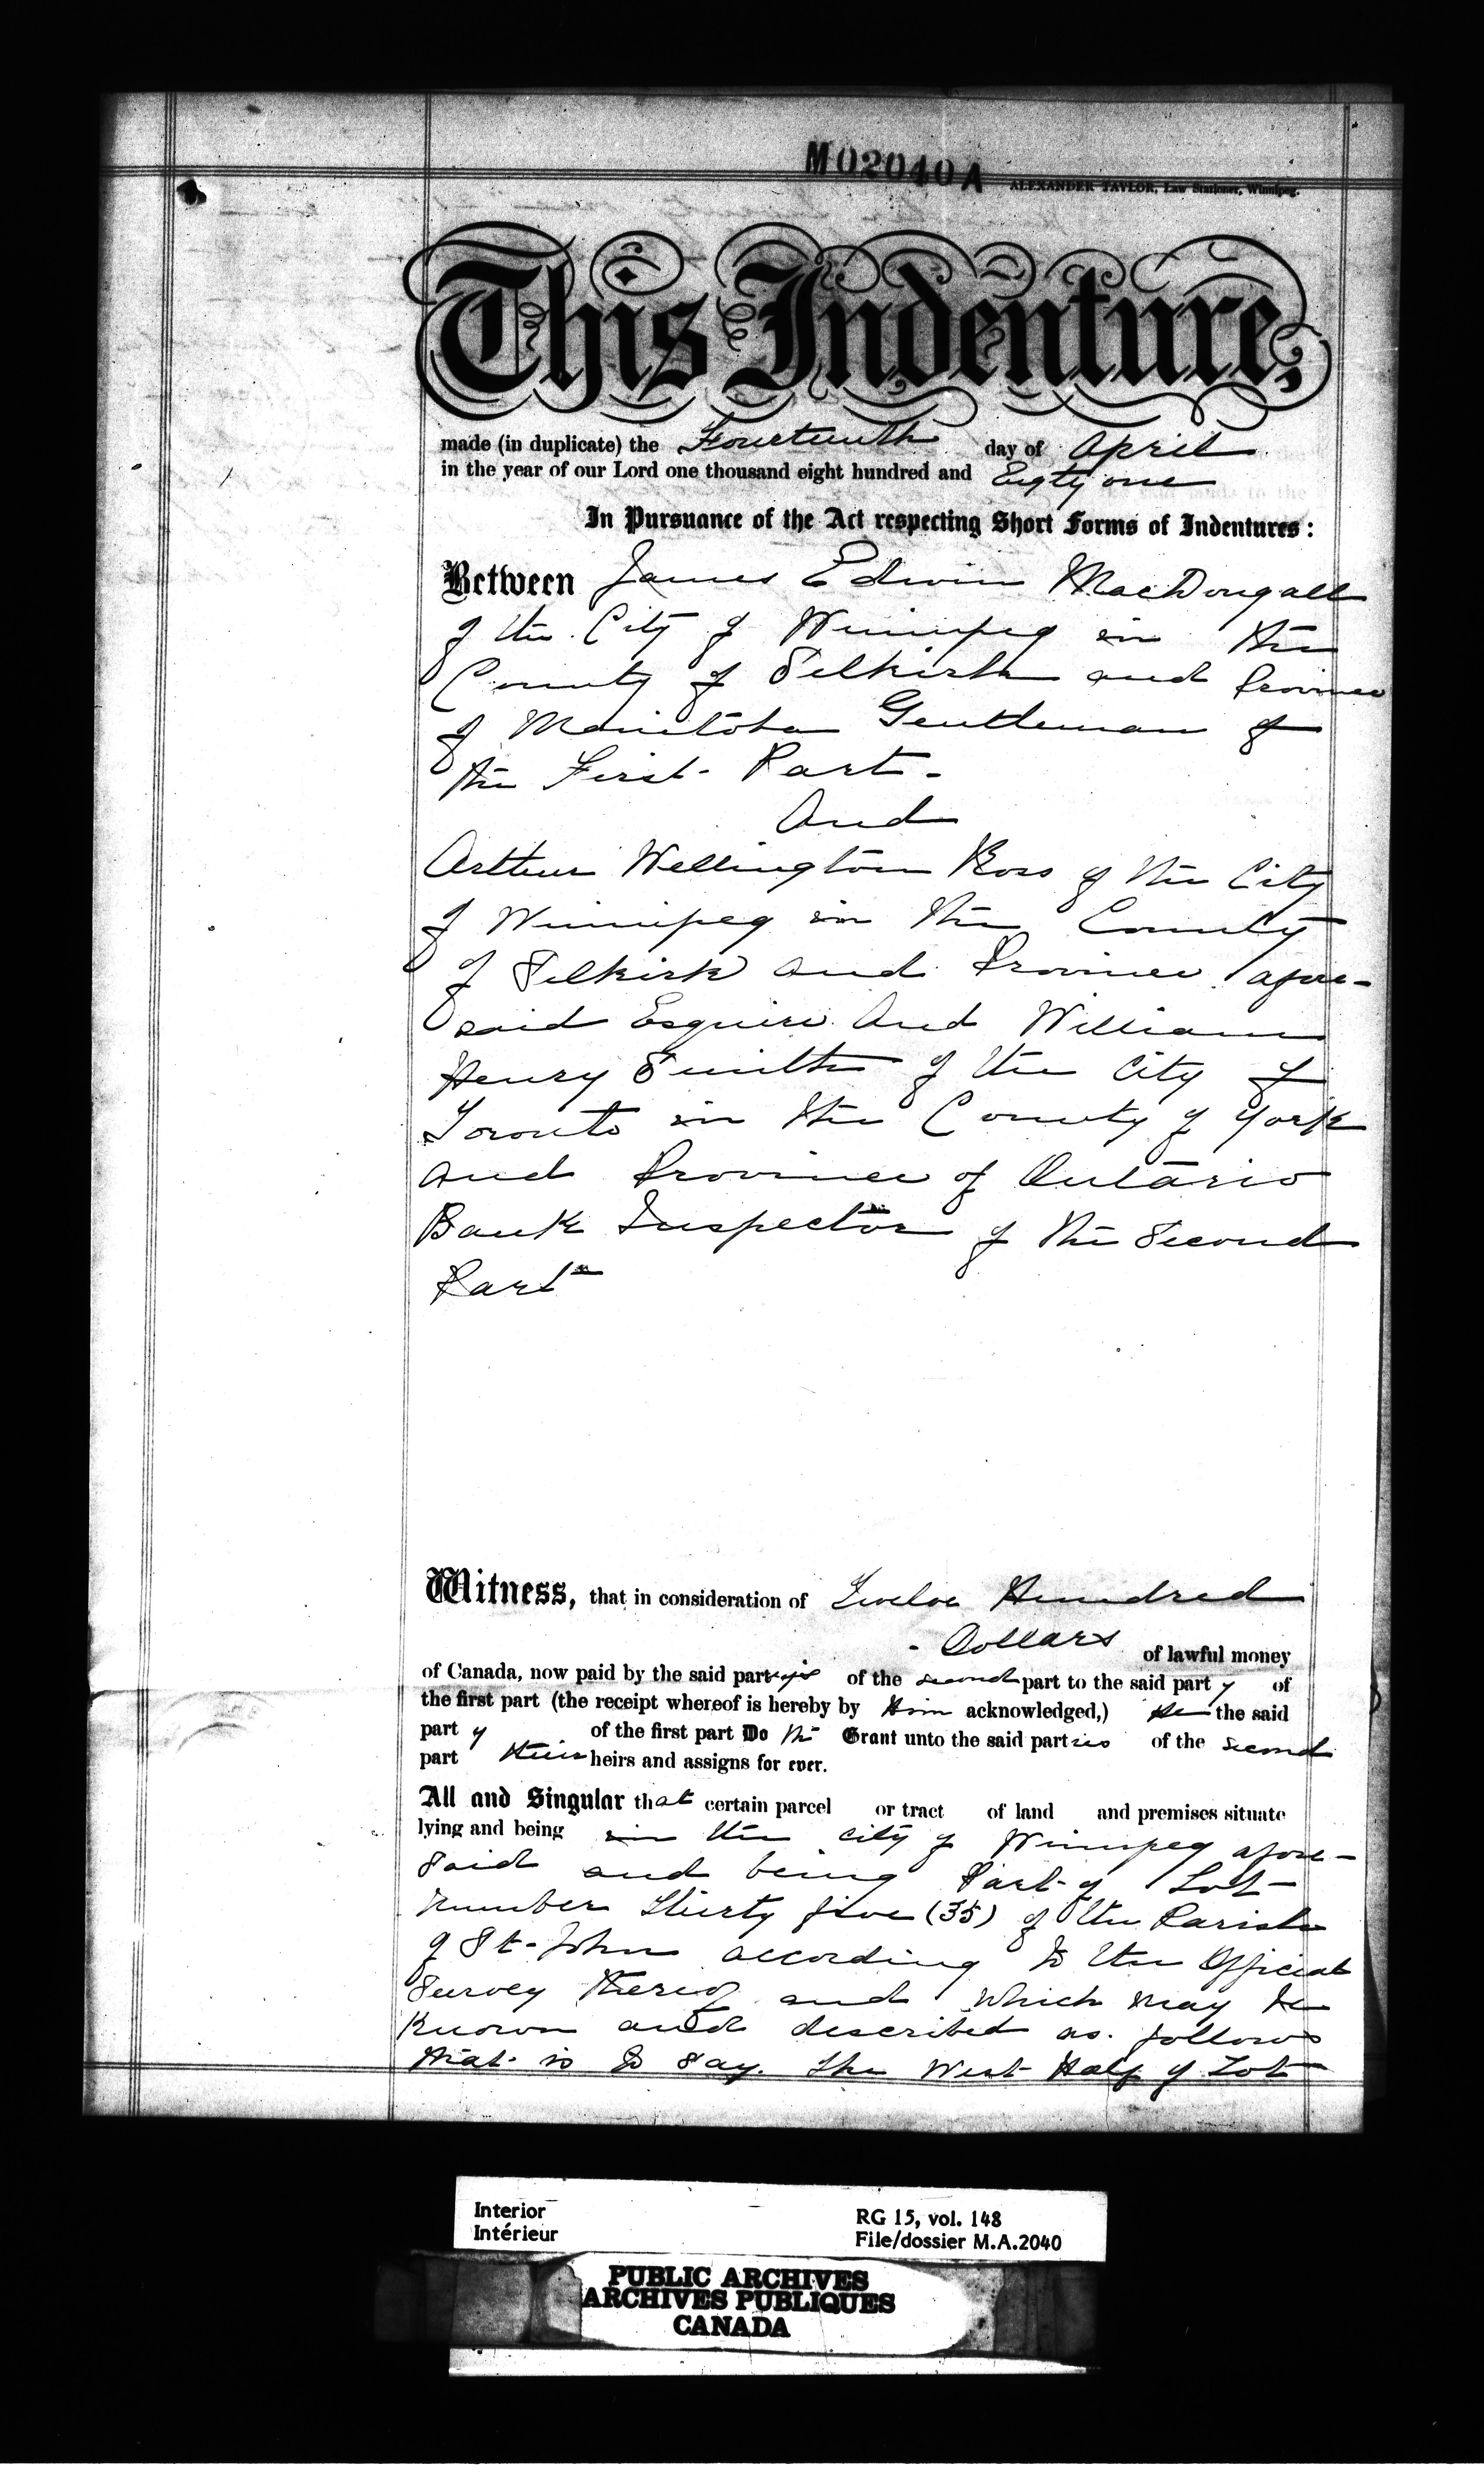 M02040A
ALEXANDER TAYLOR, Law Stationer, Winnipeg.
This Indenture,
made (in duplicate) the Fourteenth day of April
in the year of our Lord one thousand eight hundred and Eigty one
In Pursuance of the Act respecting Short Forms of Indentures:
Between James Edwin MacDougall
of the City of Winnipeg in the
County of Selkirk and Province
of Manitoba Gentleman of
the First Part-
And
Arthur Wellington Ross of the City
of Winnipeg in the County
of Selkirk and Province afore-
said Esquire And William
Henry Smith of the City of
Toronto in the County of York
and Province of Ontario
Bank Inspector of the Second
Part
Witness, that in consideration of Twelve Hundred
- Dollars of lawful money
of Canada, now paid by the said parties of the second part to the said party of
the first part (the receipt whereof is hereby by Him acknowledged,) He the said
party of the first part Do th Grant unto the said parties of the second
part their heirs and assigns for ever.
All and Singular that certain parcel or tract of land and premises situate
lying and being in the City of Winnipeg afore-
said and being Part of Lot
number Thirty five (35) of the Parish
of St. John according to the Official
Survey thereof and which may be
known and described as follows
that is to say. The West Half of Lot
Interior
Intérieur
RG 15, vol. 148
File/dossier M.A.2040
PUBLIC ARCHIVES
ARCHIVES PUBLIQUES
CANADA